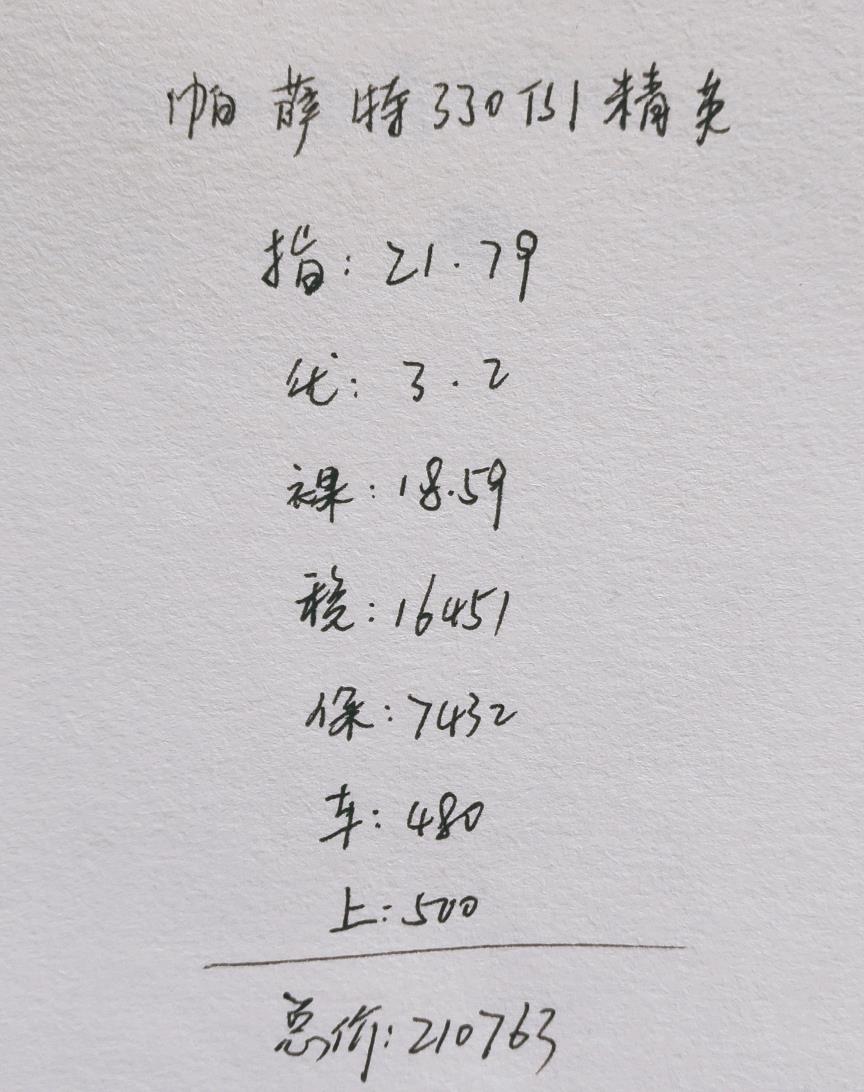 帕萨特330TSI精英
指:21.79
优:3.2
裸:18.59
税:16451
保:7432
车:480
上:500
总价:210763